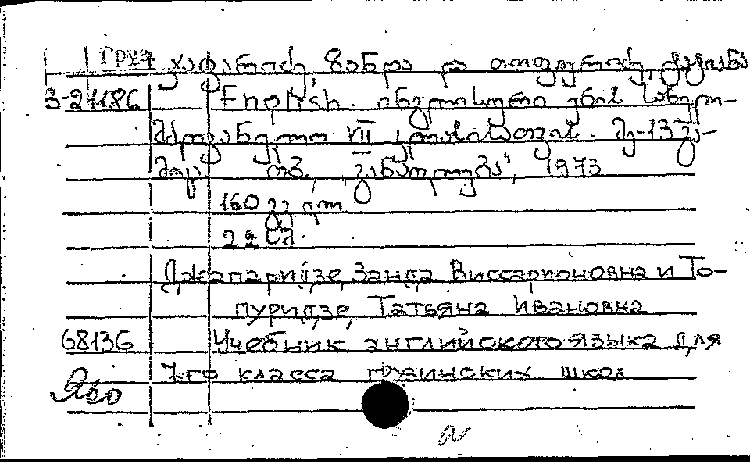 груз ჯაფარიძე, ზანდა და თოფურიძე, ტატიანა
3-27186 English. ინგლისური ენის სახელ-
მძღვანელო VII კლასისათვის. მე-13 გა-
მოც. თბ., „განათლება", 1973
160 გვ.
22 კ.
Джапаридзе, Занда Виссарионовна и То-
пуридзе, Татьяна Ивановна
68136 Учебник английского языка для
7-го класса грузинских школ